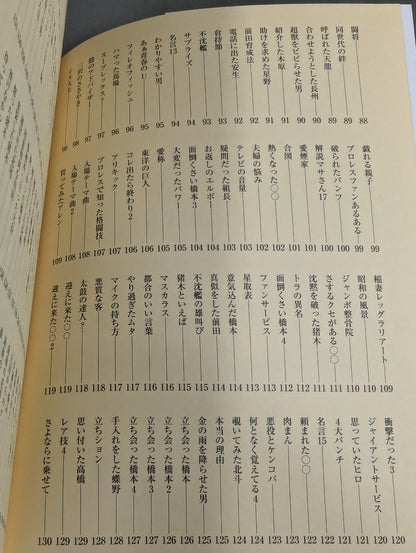 闘将 88
同世代の絆 89
呼ばれた天龍 89
合わせようとした長州 90
超獣をビビらせた男 90
紹介した木原 91
助けを求めた星野 91
前田育成法 92
電話に出た安生 92
倉持節 93
不沈艦 93
サプライズ 94
名言13 94
わかりやすい男 95
ああ青春のU 95
フィレオフィッシュ 96
ハマった馬場 96
スープレックス 97
陰のアドバイザー 97
三沢のささやき 98
イイ夫 98
戯れる親子 99
プロレスファンあるある 99
破られたパンフ 100
解説マサさん17 100
愛煙家 101
合図 101
熱くなった〇〇 102
夫婦の悩み 102
テレビの音量 103
疑問だった組長 103
お返しのエルボー 104
面倒くさい橋本3 104
大変だったパワー 105
愛称 105
東洋の巨人 106
コレ出たら終わり2 106
アリキック 107
プロレスで知った格闘技 107
入場テーマ曲 108
入場テーマ曲2 108
買ってみたアレン 109
稲妻レッグラリアート 109
昭和の風景 110
ジャンボ整骨院 110
さするクセがある〇〇 111
沈黙を破った猪木 111
トラの異名 112
面倒くさい橋本4 112
ファンサービス 113
星取表 113
意気込んだ橋本 114
真似をした前田 114
不沈艦の雄叫び 115
猪木といえば 115
マスカラス 116
都合のいい言葉 116
やり過ぎたムタ 117
マイクの持ち方 117
悪質な客 118
太鼓の達人? 118
迎えに来た〇〇 119
迎えに来た〇〇2 119
衝撃だった3 120
ジャイアントサービス 120
思っていたヒロ 121
4大パンチ 121
名言15 122
頼まれた〇〇 122
肉まん 123
悪役とケンコバ 123
何となく覚えてる4 124
覗いてみた北斗 124
本当の理由 125
金の雨を降らせた男 125
立ち会った橋本 126
立ち会った橋本2 126
立ち会った橋本3 127
立ち会った橋本4 127
手入れをした蝶野 128
立ちション 128
思い付いた高橋 129
レア技4 129
さよならに乗せて 130